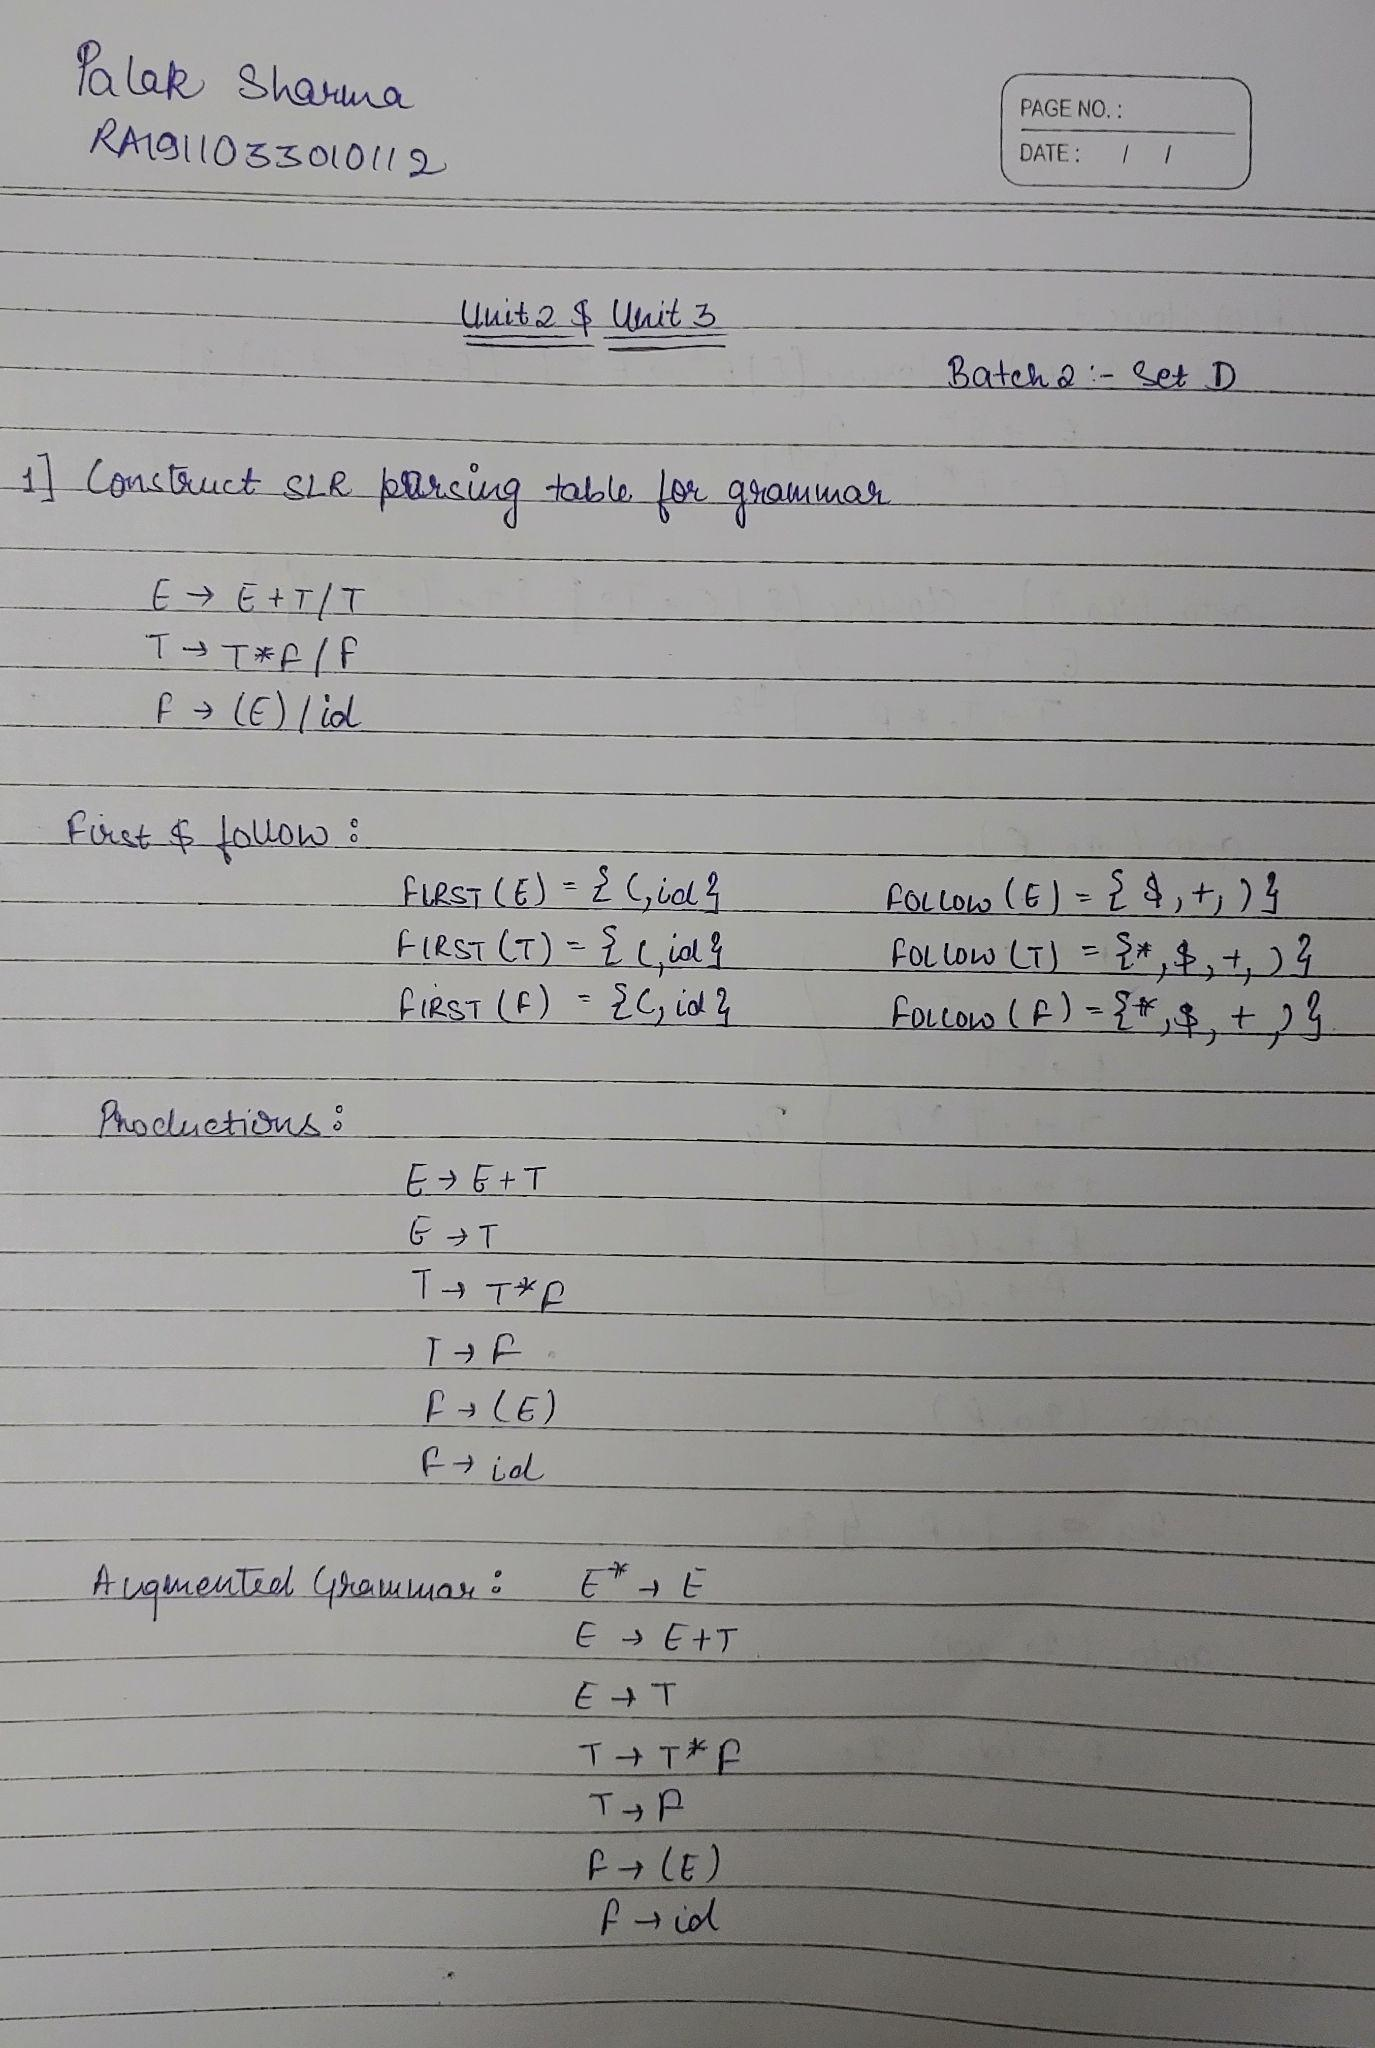 Palak Sharma
RA1911033010112
PAGE NO. :
DATE : / /
Unit 2 & Unit 3
Batch 2 :- Set D
1] Construct SLR parsing table for grammar
E → E+T/T
T → T*F/F
F → (E)/id
First & follow :
FIRST (E) = {(,id} FOLLOW (E) = {$,+,)}
FIRST (T) = {(,id} FOLLOW (T) = {*,$,+,)}
FIRST (F) = {(,id} FOLLOW (F) = {*,$,+,)}
Productions :
E → E+T
E → T
T → T*F
T → F
F → (E)
F → id
Augmented Grammar : E* → E
E → E+T
E → T
T → T*F
T → F
F → (E)
F → id